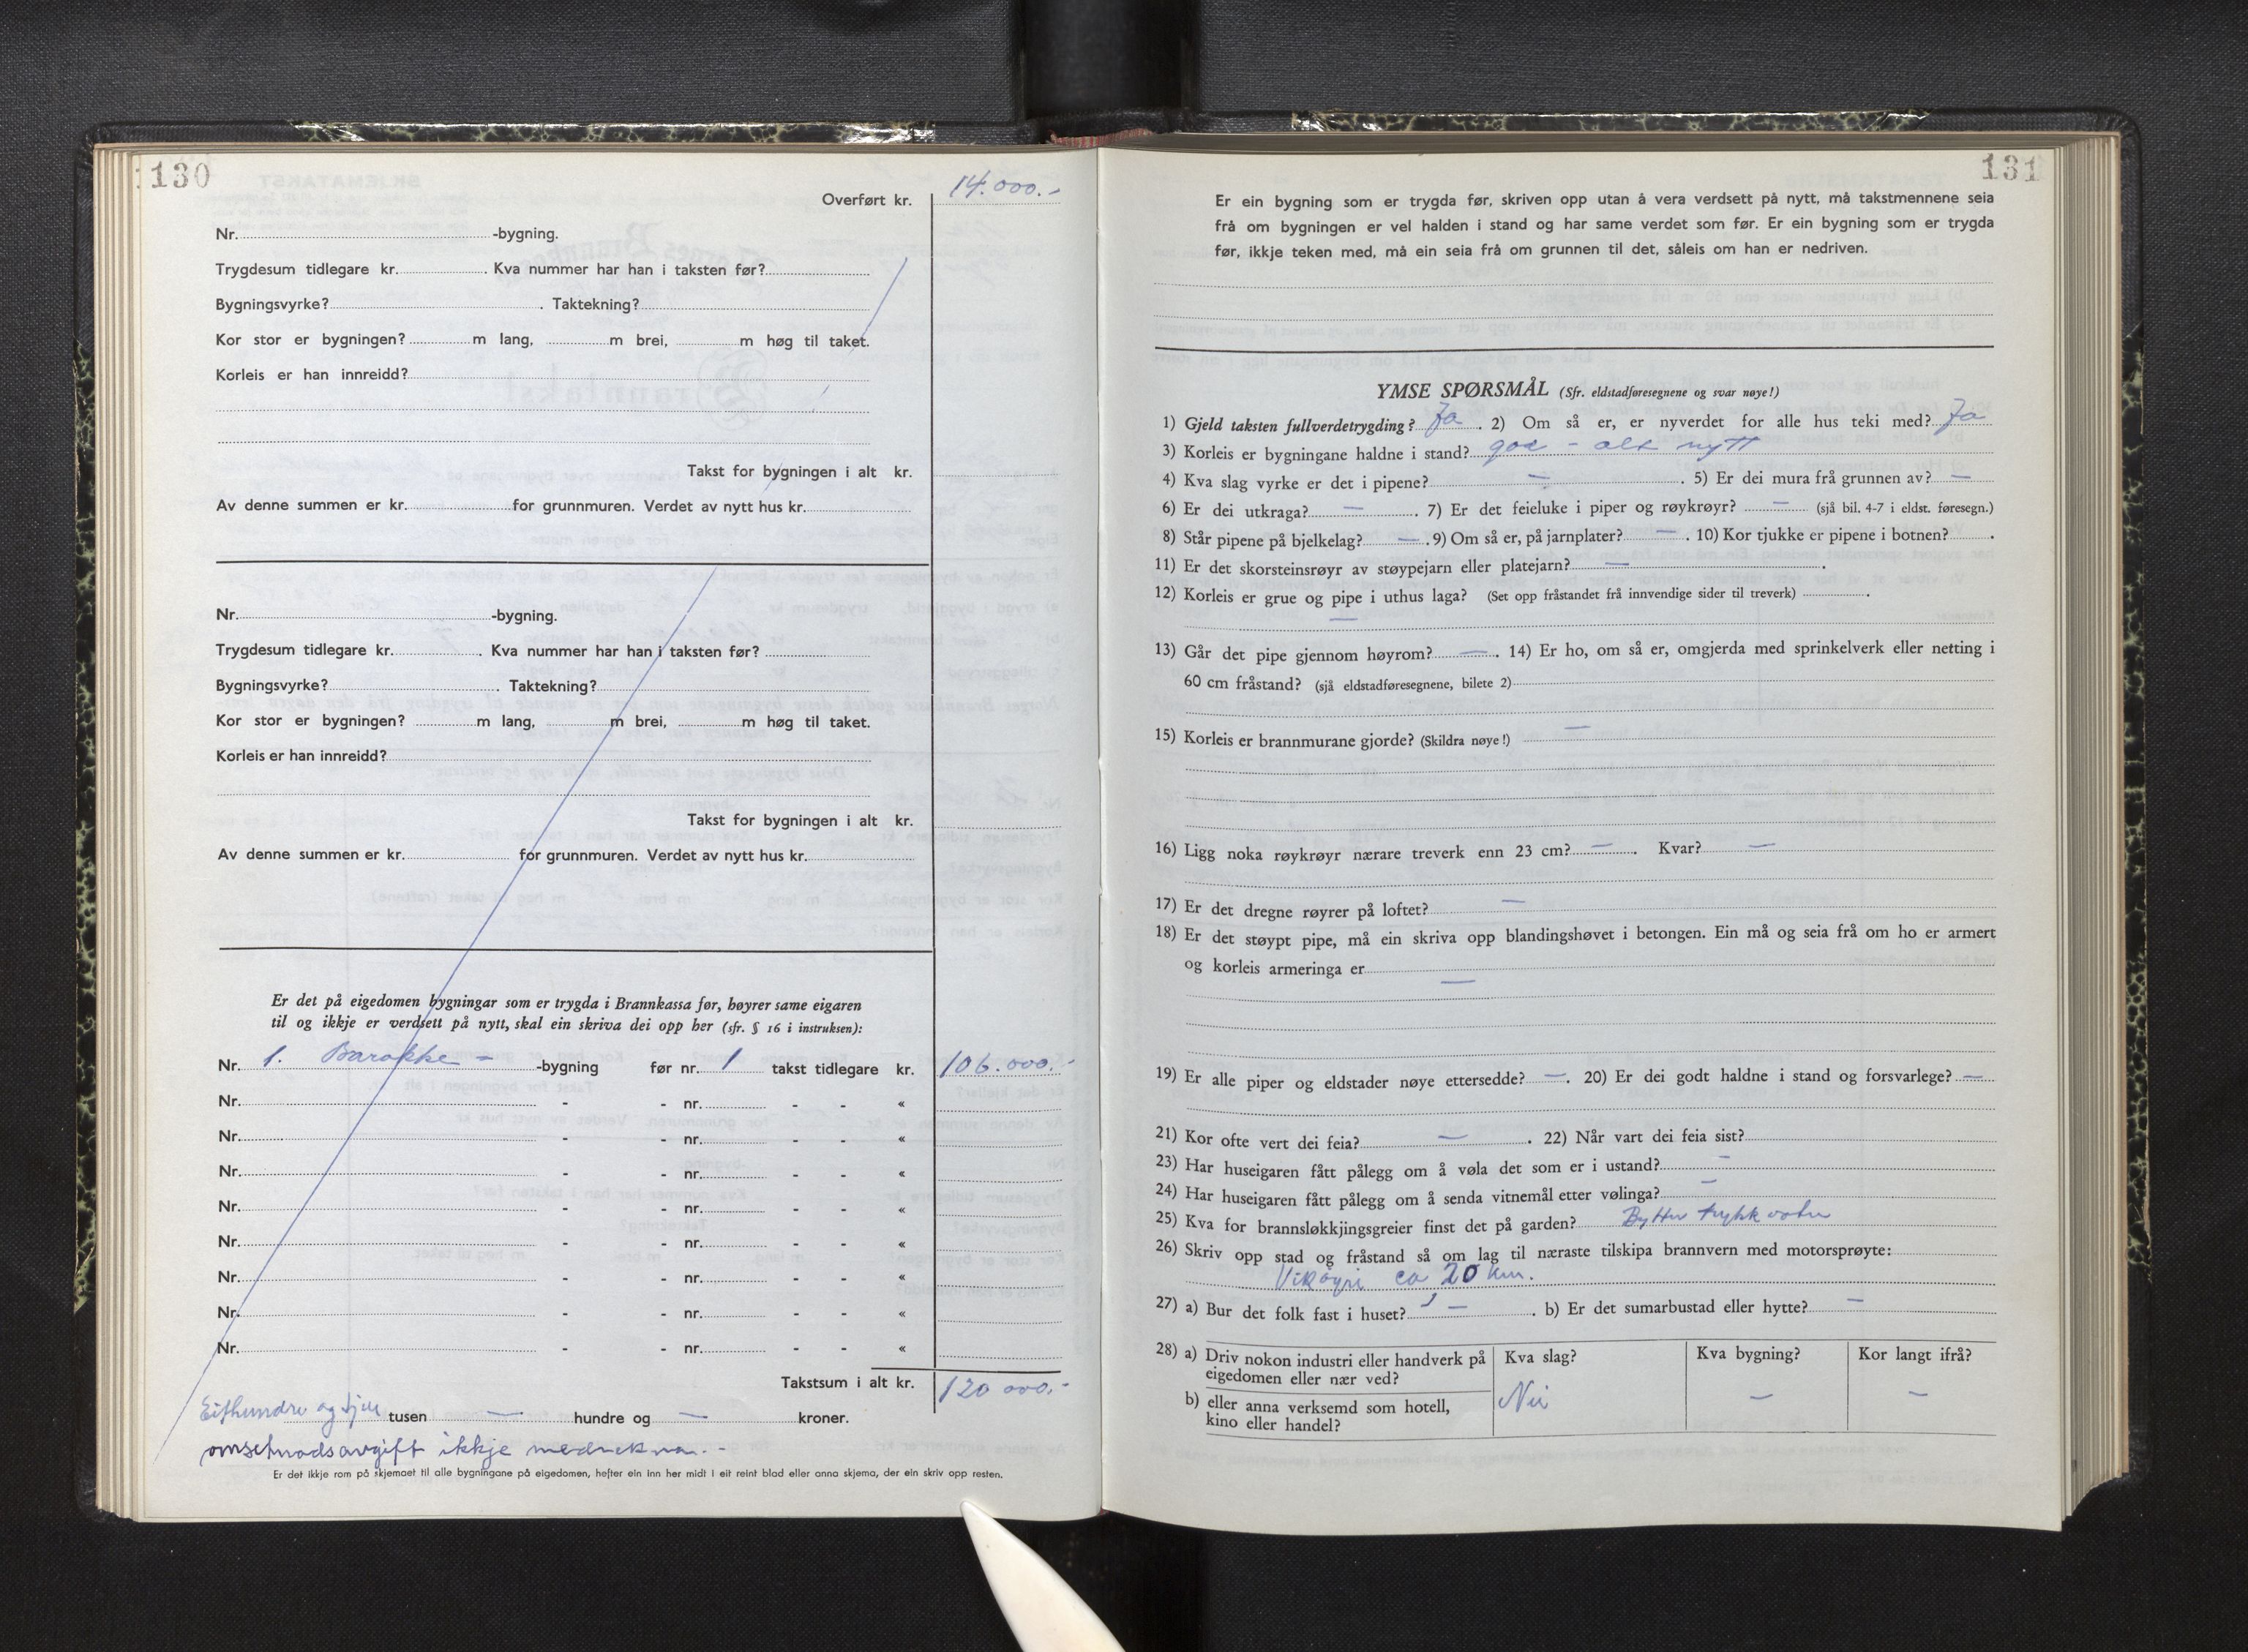 130
Overført kr. 14.000.-
Nr. -bygning.
Trygdesum tidlegare kr. . Kva nummer har han i taksten før?
Bygningsvyrke? . Taktekning?
Kor stor er bygningen? m lang, m brei, m høg til taket.
Korleis er han innreidd?
Takst for bygningen i alt kr.
Av denne summen er kr. for grunnmuren. Verdet av nytt hus kr.
Nr. -bygning.
Trygdesum tidlegare kr. . Kva nummer har han i taksten før?
Bygningsvyrke? . Taktekning?
Kor stor er bygningen? m lang, m brei, m høg til taket.
Korleis er han innreidd?
Takst for bygningen i alt kr.
Av denne summen er kr. for grunnmuren. Verdet av nytt hus kr.
Er det på eigedomen bygningar som er trygda i Brannkassa før, høyrer same eigaren
til og ikkje er verdsett på nytt, skal ein skriva dei opp her (sfr. § 16 i instruksen):
Nr. 1. Barakke - -bygning før nr. 1 takst tidlegare kr. 106.000.-
Nr. - - nr. - - «
Nr. - - nr. - - «
Nr. - - nr. - - «
Nr. - - nr. - - «
Nr. - - nr. - - «
Nr. - - nr. - - «
Nr. - - nr. - - «
Nr. - - nr. - - «
Takstsum i alt kr. 120 000.-
Eithundre og tjue tusen — hundre og — kroner.
omsetnadsavgift ikkje medrekna. -
Er det ikkje rom på skjemaet til alle bygningane på eigedomen, hefter ein inn her midt i eit reint blad eller anna skjema, der ein skriv opp resten.
131
Er ein bygning som er trygda før, skriven opp utan å vera verdsett på nytt, må takstmennene seia
frå om bygningen er vel halden i stand og har same verdet som før. Er ein bygning som er trygda
før, ikkje teken med, må ein seia frå om grunnen til det, såleis om han er nedriven.
YMSE SPØRSMÅL (Sfr. eldstadføresegnene og svar nøye!)
1) Gjeld taksten fullverdetrygding? Ja . 2) Om så er, er nyverdet for alle hus teki med? Ja
3) Korleis er bygningane haldne i stand? god - alt nytt
4) Kva slag vyrke er det i pipene? — . 5) Er dei mura frå grunnen av? —
6) Er dei utkraga? — . 7) Er det feieluke i piper og røykrøyr? — (sjå bil. 4-7 i eldst. føresegn.)
8) Står pipene på bjelkelag? — . 9) Om så er, på jarnplater? — . 10) Kor tjukke er pipene i botnen? .
11) Er det skorsteinsrøyr av støypejarn eller platejarn? — .
12) Korleis er grue og pipe i uthus laga? (Set opp fråstandet frå innvendige sider til treverk) .
—
13) Går det pipe gjennom høyrom? — . 14) Er ho, om så er, omgjerda med sprinkelverk eller netting i
60 cm fråstand? (sjå eldstadføresegnene, bilete 2)
15) Korleis er brannmurane gjorde? (Skildra nøye!) —
16) Ligg noka røykrøyr nærare treverk enn 23 cm? — . Kvar? —
17) Er det dregne røyrer på loftet? —
18) Er det støypt pipe, må ein skriva opp blandingshøvet i betongen. Ein må og seia frå om ho er armert
og korleis armeringa er —
19) Er alle piper og eldstader nøye ettersedde? — . 20) Er dei godt haldne i stand og forsvarlege? —
21) Kor ofte vert dei feia? — . 22) Når vart dei feia sist?
23) Har huseigaren fått pålegg om å vøla det som er i ustand? —
24) Har huseigaren fått pålegg om å senda vitnemål etter vølinga? —
25) Kva for brannsløkkjingsgreier finst det på garden? Bytter trykkvatn
26) Skriv opp stad og fråstand så om lag til næraste tilskipa brannvern med motorsprøyte:
Vikøyri ca 20 km.
27) a) Bur det folk fast i huset? — . b) Er det sumarbustad eller hytte? —
28) a) Driv nokon industri eller handverk på Kva slag? Kva bygning? Kor langt ifrå?
eigedomen eller nær ved?
b) eller anna verksemd som hotell, Nei — —
kino eller handel?